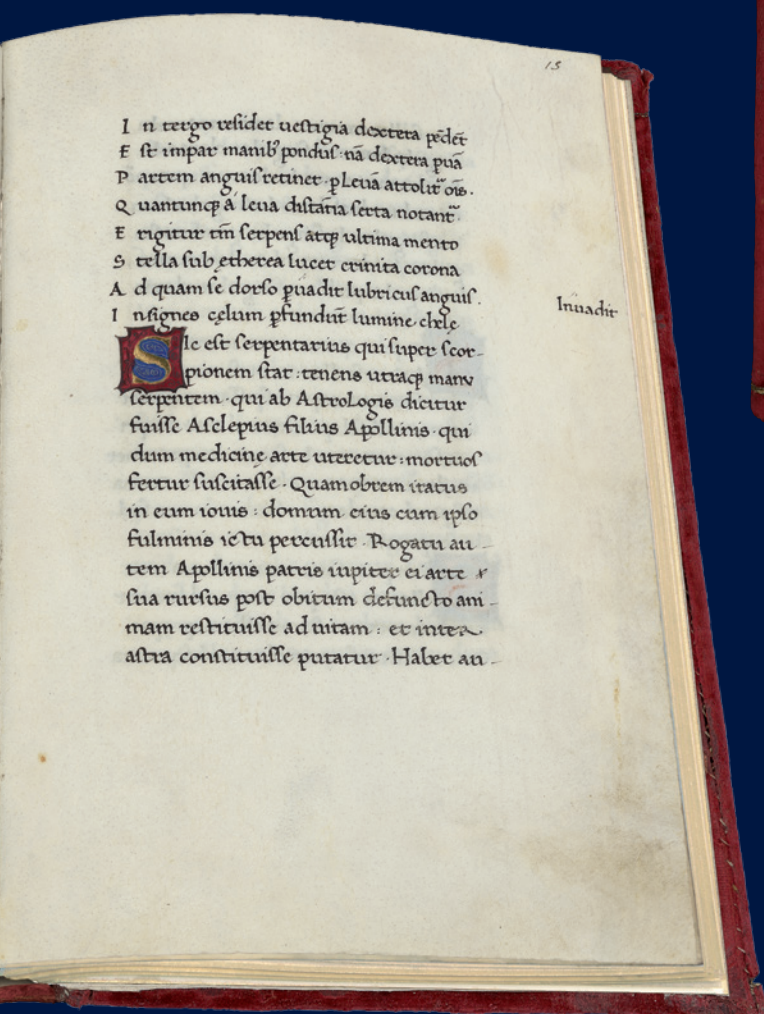 15
In tergo residet uestigia dextera pēdēt
Est impar manibꝰ pondus: nā dextera ꝑuā
Partem anguis retinet. ꝑ Leuā attolit᷑ oīs.
Quantunqꝫ á leua distātia serta notant᷑
Erigitur tm̄ serpens atqꝫ ultima mento
Stella sub ętherea lucet crinita corona
Ad quam se dorso ꝑuadit lubricus anguis.
Insignes cęlum ꝑfundūt lumine chelę
Inuadit
SIc est serpentarius qui super scor-
pionem stat: tenens utraqꝫ manu
serpentem. qui ab AstroLogis dicitur
fuisse Asclepius filius Apollinis. qui
dum medicinę arte uteretur: mortuos
fertur suscitasse. Quamobrem iratus
in eum iouis: domum eius cum ipso
fulminis ictu percussit. Rogatu au-
tem Apollinis patris iupiter ei arte
sua rursus post obitum defuncto ani-
mam restituisse ad uitam: et inter
astra constituisse putatur. Habet au-